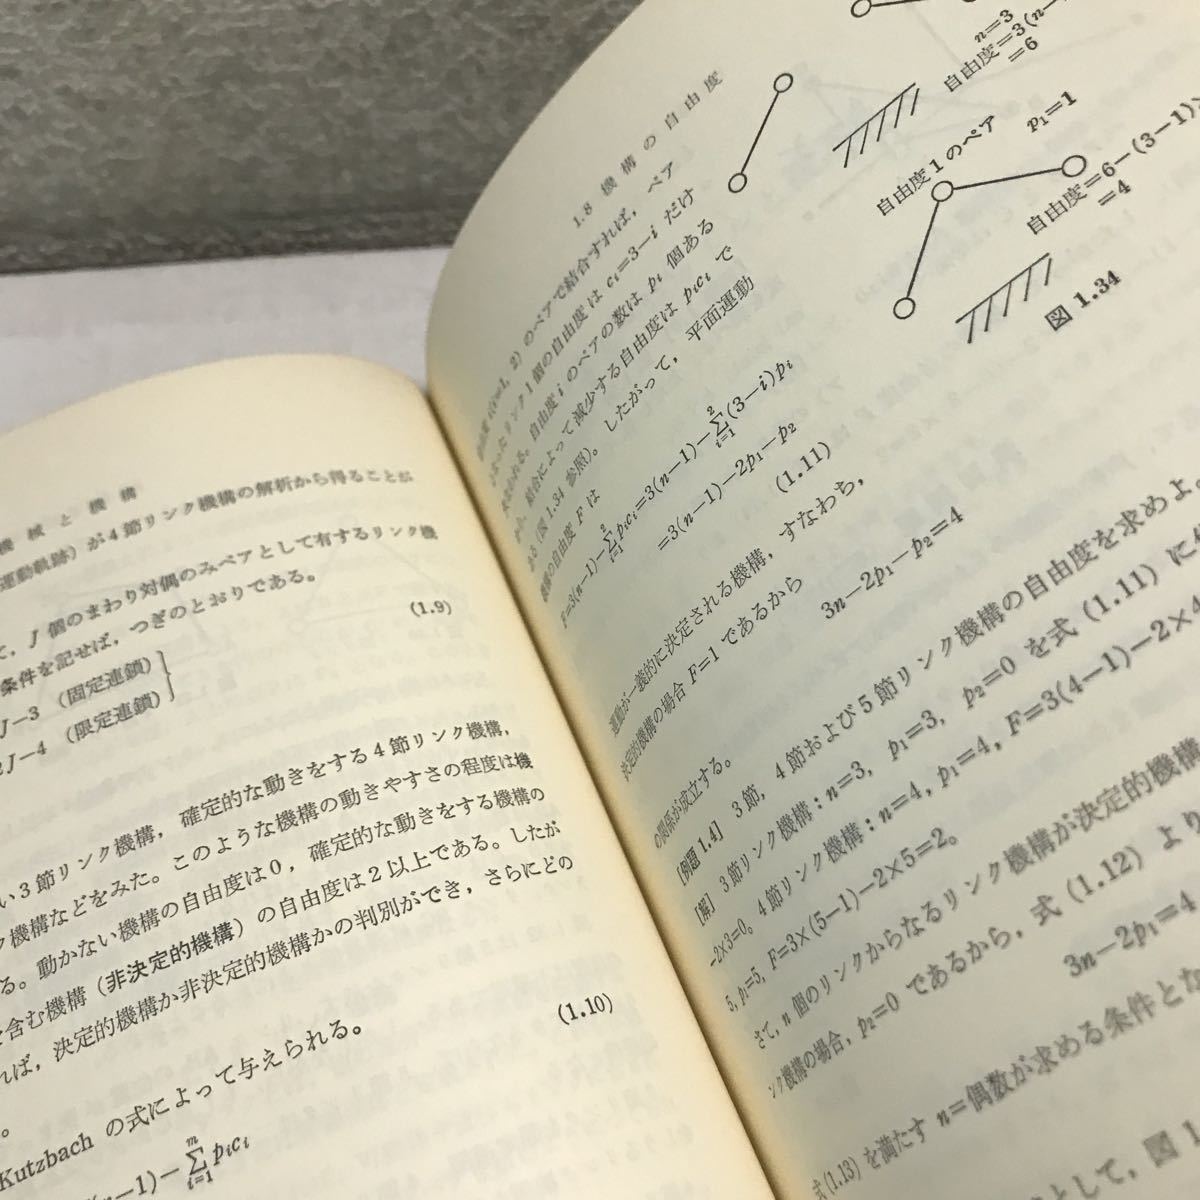 機械と機構
運動軌跡）が4節リンク機構の解析から得ることが
て，J個のまわり対偶のみペアとして有するリンク機
条件を記せば，つぎのとおりである。
J−3 （固定連鎖）
J−4 （限定連鎖）
(1.9)
い3節リンク機構，確定的な動きをする4節リンク機構，
ク機構などをみた。このような機構の動きやすさの程度は機
る。動かない機構の自由度は0，確定的な動きをする機構の
を含む機構（非決定的機構）の自由度は2以上である。したが
れば，決定的機構か非決定的機構かの判別ができ，さらにどの
(1.10)
。
Kutzbach の式によって与えられる。
(n−1)−Σ_{i=1}^{m} p_i c_i
1.8 機構の自由度
(i=1, 2) のペアで結合すれば，ペア
リンク1個の自由度は c_i=3−i だけ
自由度 i のペアの数は p_i 個ある
結合によって減少する自由度は p_i c_i で
ある（図1.34 参照）。したがって，平面運動
機構の自由度 F は
F=3(n−1)−Σ_{i=1}^{2} p_i c_i=3(n−1)−Σ_{i=1}^{2}(3−i)p_i
=3(n−1)−2p_1−p_2
(1.11)
運動が一義的に決定される機構，すなわち，
決定的機構の場合 F=1 であるから
3n−2p_1−p_2=4
の関係が成立する。
n=3
自由度=3(n−
=6
自由度1のペア
p_1=1
自由度=6−(3−1)
=4
図 1.34
[例題1.4] 3節，4節および5節リンク機構の自由度を求めよ。
[解] 3節リンク機構：n=3, p_1=3, p_2=0 を式 (1.11) に
−2×3=0。4節リンク機構：n=4, p_1=4, F=3(4−1)−2×4
5, p_1=5, F=3×(5−1)−2×5=2。
さて，n 個のリンクからなるリンク機構が決定的機構
ンク機構の場合，p_2=0 であるから，式 (1.12) より
3n−2p_1=4
式(1.13) を満たす n=偶数が求める条件とな
として，図1.